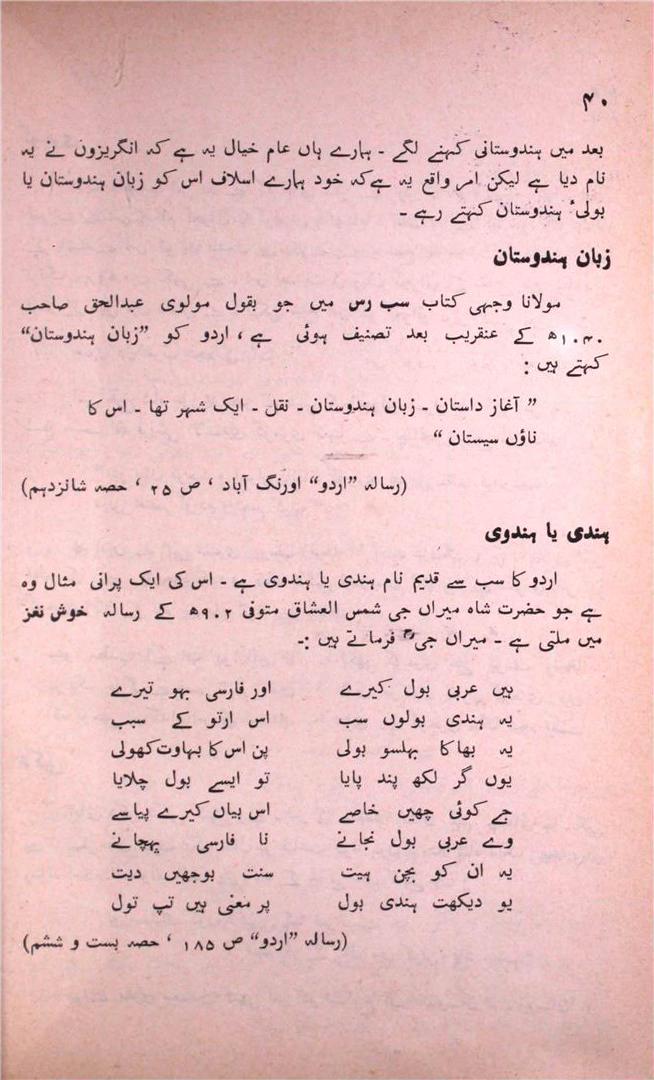 ۴۰
بعد میں ہندوستانی کہنے لگے ۔ ہمارے ہاں عام خیال یہ ہے کہ انگریزون نے یہ
نام دیا ہے لیکن امر واقع یہ ہےکہ خود ہمارے اسلاف اس کو زبان ہندوستان یا
بولیٔ ہندوستان کہتے رہے ۔
زبان ہندوستان
مولانا وجہی کتاب سب رس میں جو بقول مولوی عبدالحق صاحب
۱۰۴۰ھ کے عنقریب بعد تصنیف ہوئی ہے ، اردو کو ”زبان ہندوستان“
کہتے ہیں :
” آغاز داستان ۔ زبان ہندوستان ۔ نقل ۔ ایک شہر تھا ۔ اس کا
ناؤں سیستان “
(رسالہ ”اردو“ اورنگ آباد ، ص ۲۵ ، حصہ شانزدہم)
ہندی یا ہندوی
اردو کا سب سے قدیم نام ہندی یا ہندوی ہے ۔ اس کی ایک پرانی مثال وہ
ہے جو حضرت شاہ میراں جی شمس العشاق متوفی ۹۰۲ھ کے رسالہ خوش نغز
میں ملتی ہے ۔ میراں جی فرماتے ہیں :۔
ہیں عربی بول کیرے اور فارسی بہو تیرے
یہ ہندی بولوں سب اس ارتو کے سبب
یہ بھاکا بھلسو بولی پن اس کا بھاوت کھولی
یوں گر لکھ پند پایا تو ایسے بول چلایا
جے کوئی چھیں خاصے اس بیاں کیرے پیاسے
وے عربی بول نجانے نا فارسی پہچانے
یہ ان کو بچن ہیت سنت بوجھیں دیت
یو دیکھت ہندی بول پر معنی ہیں تپ تول
(رسالہ ”اردو“ ص ۱۸۵ ، حصہ بست و ششم)